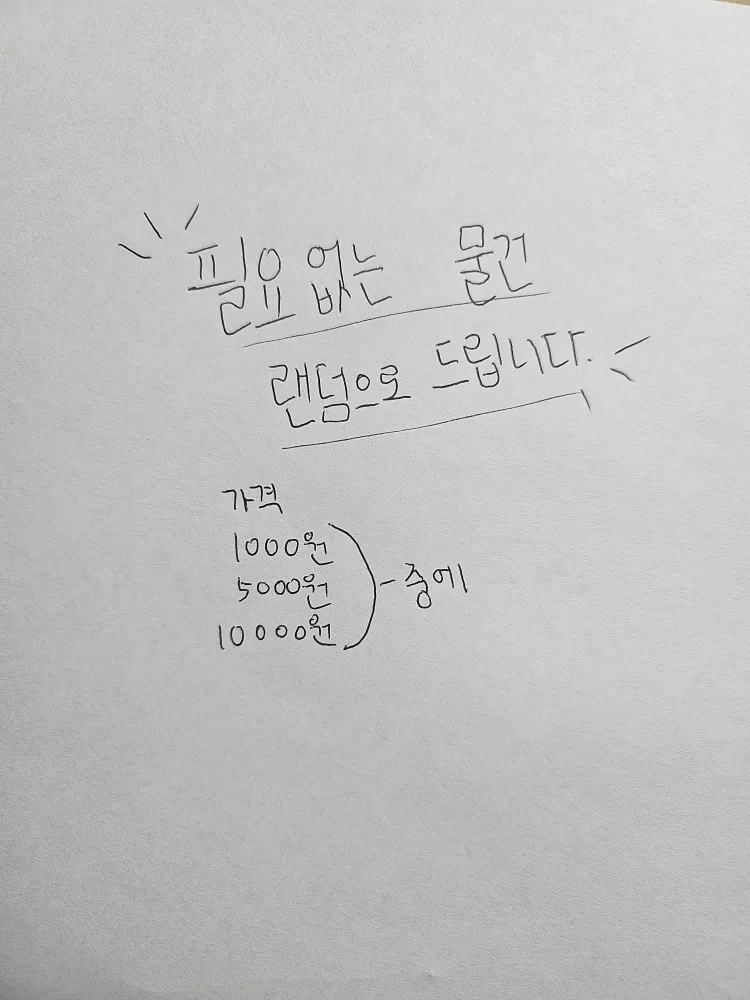 필요없는 물건
랜덤으로 드립니다.
가격
1000원
5000원
10000원
- 중에